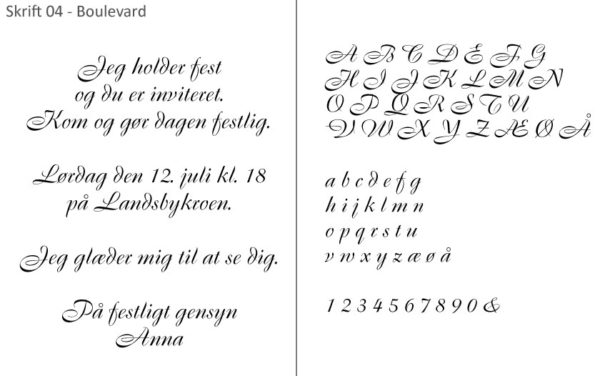 Skrift 04 - Boulevard
Jeg holder fest
og du er inviteret.
Kom og gør dagen festlig.
Lørdag den 12. juli kl. 18
på Landsbykroen.
Jeg glæder mig til at se dig.
På festligt gensyn
Anna
A B C D E F G
H I J K L M N
O P Q R S T U
V W X Y Z Æ Ø Å
a b c d e f g
h i j k l m n
o p q r s t u
v w x y z æ ø å
1 2 3 4 5 6 7 8 9 0 &